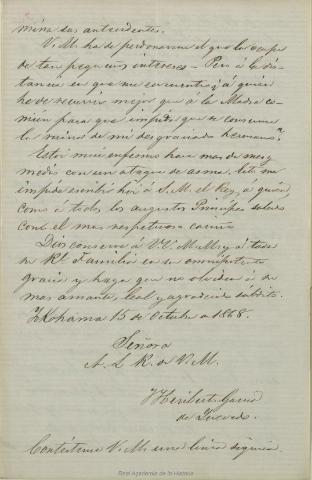 mina sus antecedentes.
V. M. ha de perdonarme el que la ocupe
de tan pequeños intereses - Pero á la dis-
tancia en que me encuentro ¿á quién
he de recurrir mejor que á la Madre co-
mún para que impida que se consume
la ruina de mi desgraciado hermano?
Estoy muy enfermo hace mas de mes y
medio con un ataque de asma. Esto me
impide escribir hoy á S. M. el Rey, á quien,
como á todos los augustos Principes saludo
con el mas respetuoso cariño
Dios conserve á VV. MM. y á toda
su Rl Familia en su omnipotente
gracia y haga que no olviden á su
mas amante, leal y agradecido súbdito.
Yokohama 15 de Octubre 1868.
Señora
A. L. R. de V. M.
Heriberto Garcia
de Quevedo.
Contésteme V. M. una linea siquiera
Real Academia de la Historia